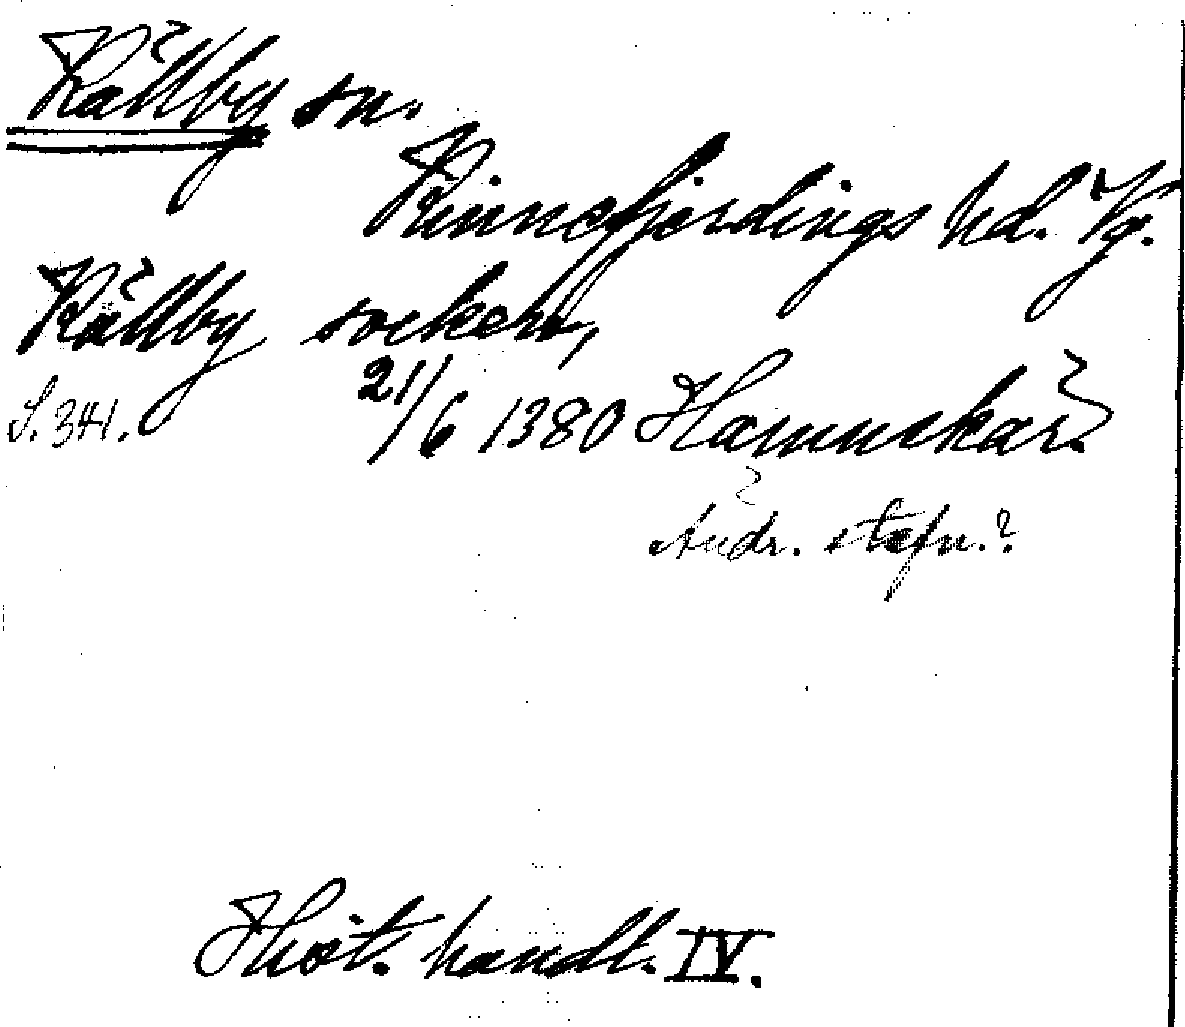 Källby sn.
Kinnefjerdings hd. Vg.
Källby socken,
S. 341. 21/6 1380 Hamnskär
Audr. stafn.?
Hist. handl. IV.